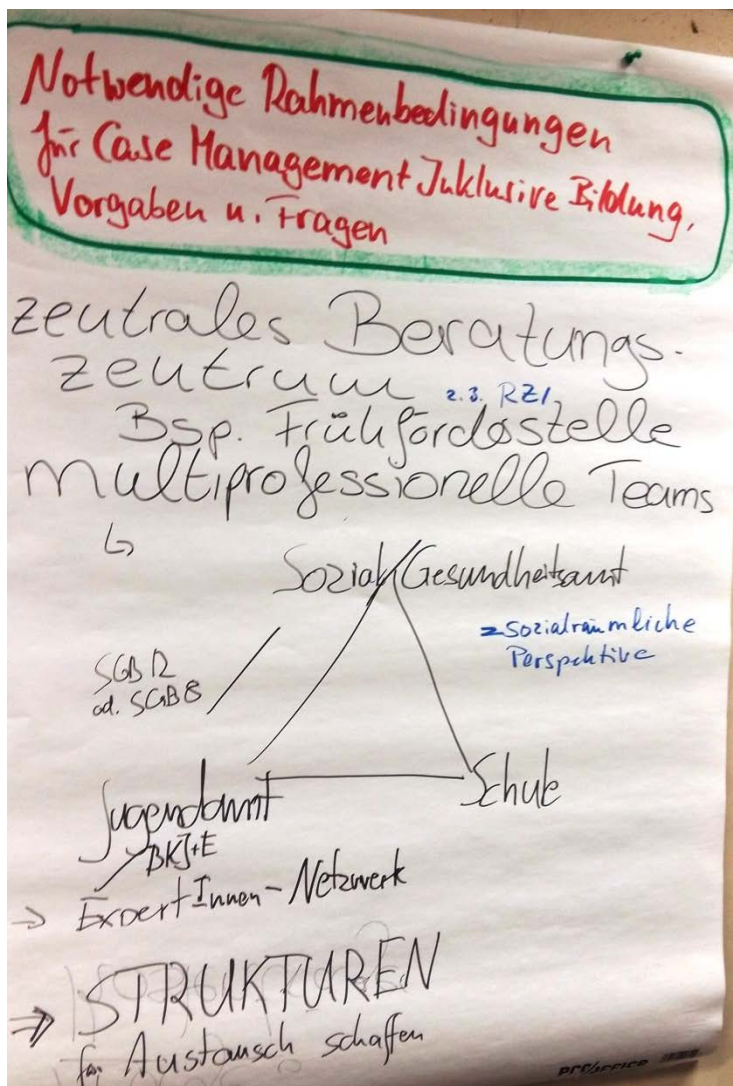 Notwendige Rahmenbedingungen
für Case Management Inklusive Bildung,
Vorgaben u. Fragen
zentrales Beratungs-
zentrum
z.B. RZI
Bsp. Frühförderstelle
multiprofessionelle Teams
Sozial/Gesundheitsamt
sozialräumliche
Perspektive
SGB 12
od. SGB 8
Jugendamt
Schule
BKJ+E
→ ExpertInnen-Netzwerk
⇒ STRUKTUREN
für Austausch schaffen